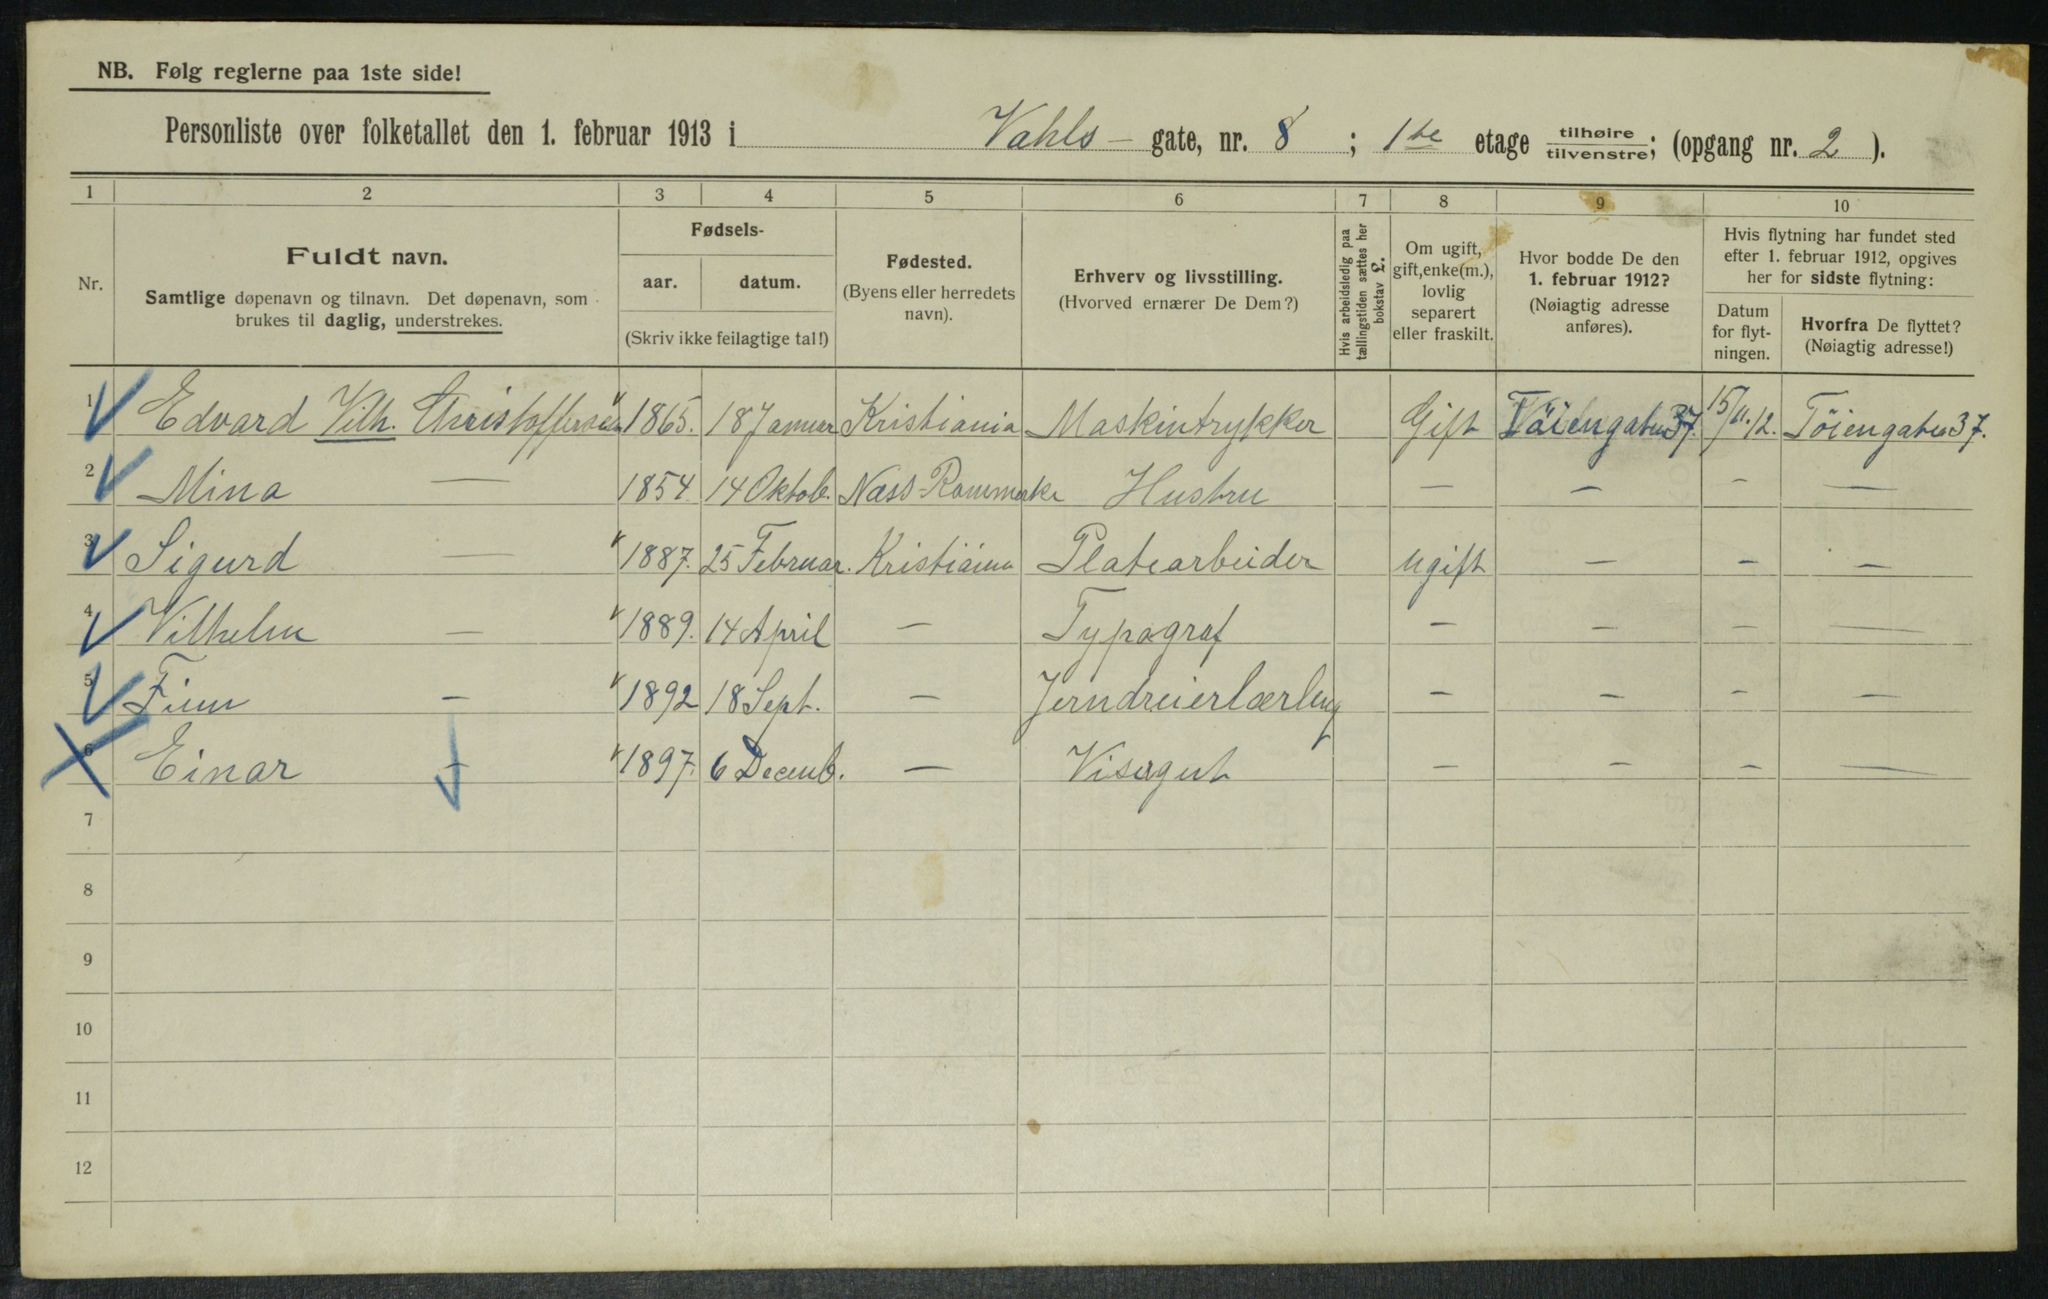 NB. Følg reglerne paa 1ste side!
Personliste over folketallet den 1. februar 1913 i Vahls - gate, nr. 8 ; 1ste etage tilhøire tilvenstre; (opgang nr. 2 ).
1 2 3 4 5 6 7 8 9 10
Nr.
Fuldt navn.
Samtlige døpenavn og tilnavn. Det døpenavn, som
brukes til daglig, understrekes.
Fødsels-
aar. datum.
(Skriv ikke feilagtige tal!)
Fødested.
(Byens eller herredets
navn).
Erhverv og livsstilling.
(Hvorved ernærer De Dem?)
Hvis arbeidsledig paa
tællingstiden sættes her
bokstav L.
Om ugift,
gift, enke(m.),
lovlig
separert
eller fraskilt.
Hvor bodde De den
1. februar 1912?
(Nøiagtig adresse
anføres).
Hvis flytning har fundet sted
efter 1. februar 1912, opgives
her for sidste flytning:
Datum
for flyt-
ningen.
Hvorfra De flyttet?
(Nøiagtig adresse!)
1 Edvard Vilh. Christoffersen 1865. 18 Januar Kristiania Maskintrykker Gift Tøiengaten 37. 15/11.12. Tøiengaten 37.
2 Mina — 1854. 14 Oktob. Næss Romerike Hustru — — — —
3 Sigurd — 1887. 25 Februar. Kristiania Platearbeider ugift — — —
4 Vilhelm — 1889. 14 April — Typograf — — — —
5 Finn — 1892 18 Sept. — Jerndreierlærling — — — —
6 Einar — 1897. 6 Decemb. — Visergut — — — —
7
8
9
10
11
12